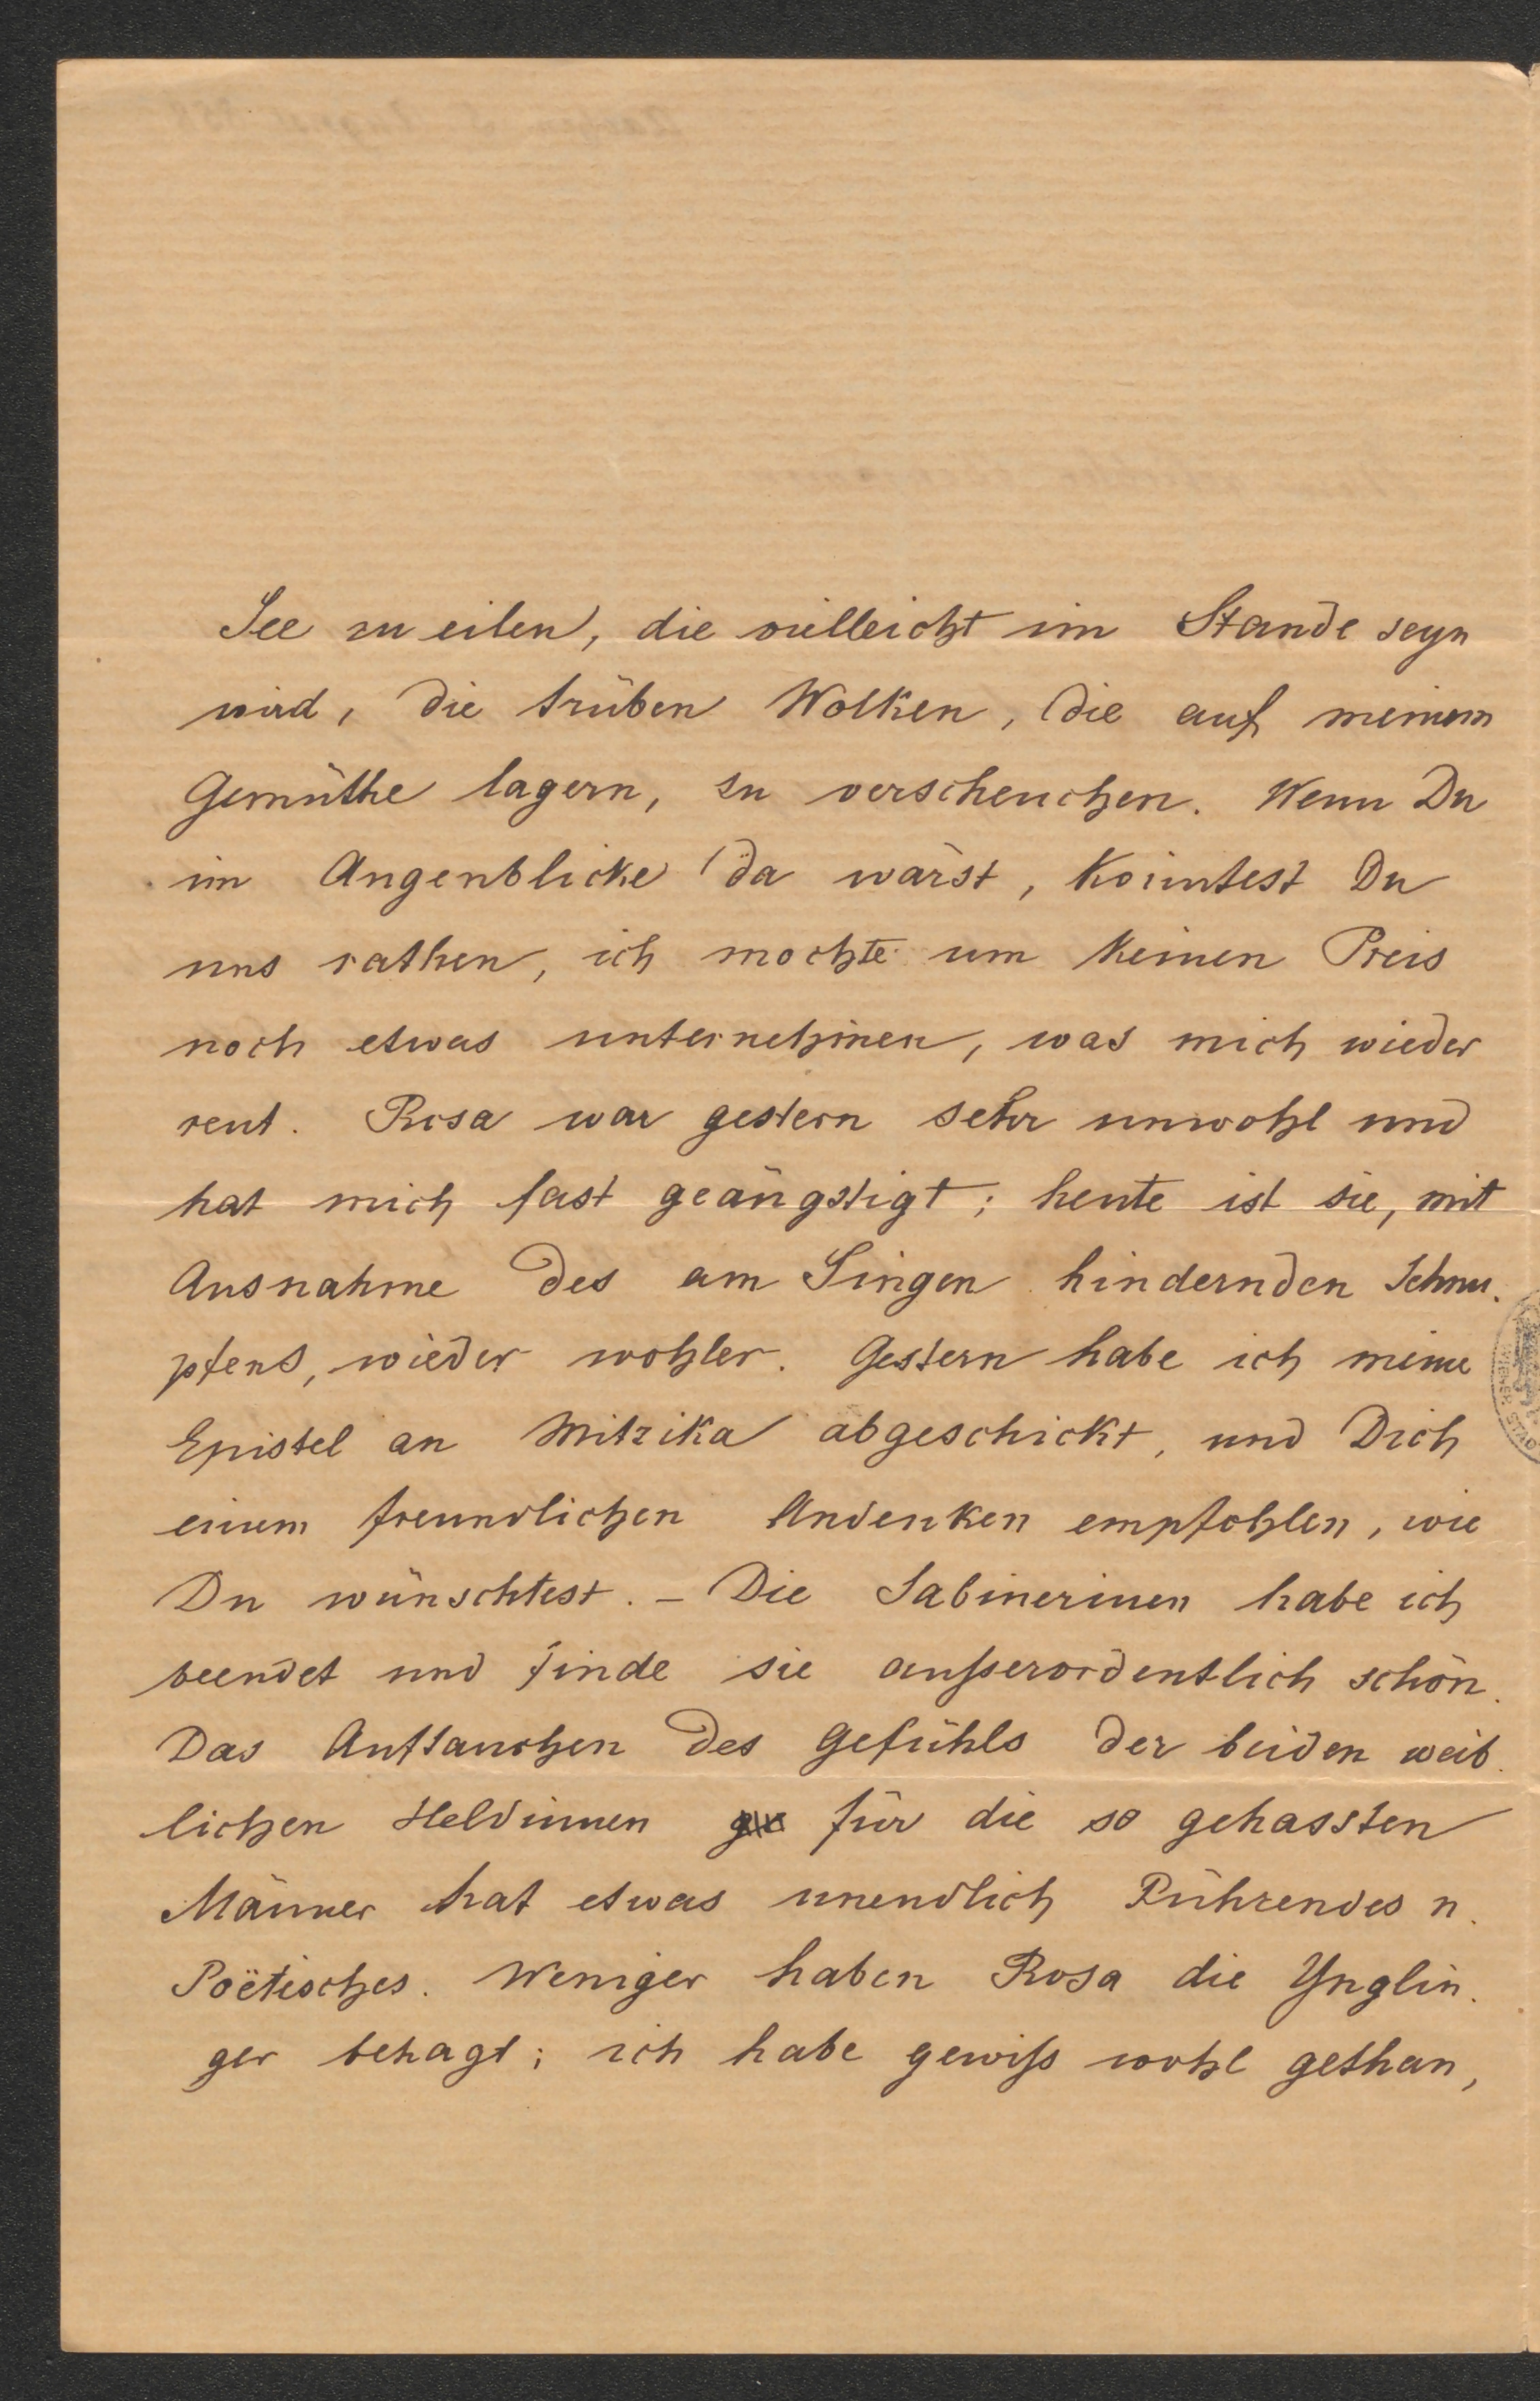 See zu eilen, die vielleicht im Stande seyn
wird, die trüben Wolken, die auf meinem
Gemüthe lagern, zu verscheuchen. Wenn Du
im Augenblicke da wärst, könntest Du
uns rathen, ich möchte um keinen Preis
noch etwas unternehmen, was mich wieder
reut. Rosa war gestern sehr unwohl und
hat mich fast geängstigt; heute ist sie, mit
Ausnahme des am Singen hindernden Schnu-
pfens, wieder wohler. Gestern habe ich meine
Epistel an Mitzika abgeschickt, und Dich
einem freundlichen Andenken empfohlen, wie
Du wünschtest. – Die Sabinerinen habe ich
beendet und finde sie außerordentlich schön.
Das Auftauchen des Gefühls der beiden weib-
lichen Heldinnen für die so gehassten
Männer hat etwas unendlich Rührendes u.
Poëtisches. Weniger haben Rosa die Ynglin-
ger behagt; ich habe gewiß wohl gethan,